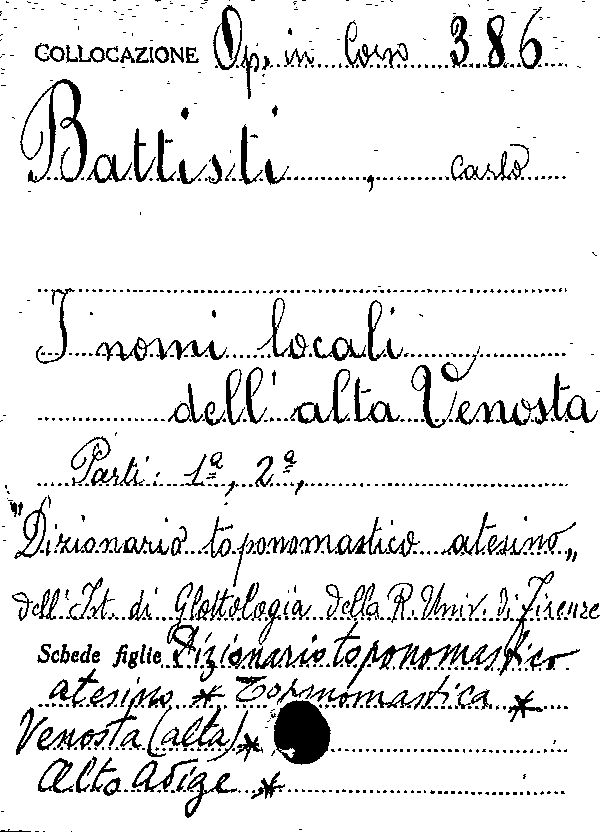 COLLOCAZIONE Op. in Corso 386
Battisti, Carlo
I nomi locali
dell'alta Venosta
Parti: 1ª, 2ª,
"Dizionario toponomastico atesino„
dell'Ist. di Glottologia della R. Univ. di Firenze
Schede figlie Dizionario toponomastico
atesino * Toponomastica *
Venosta (alta) *
Alto Adige *